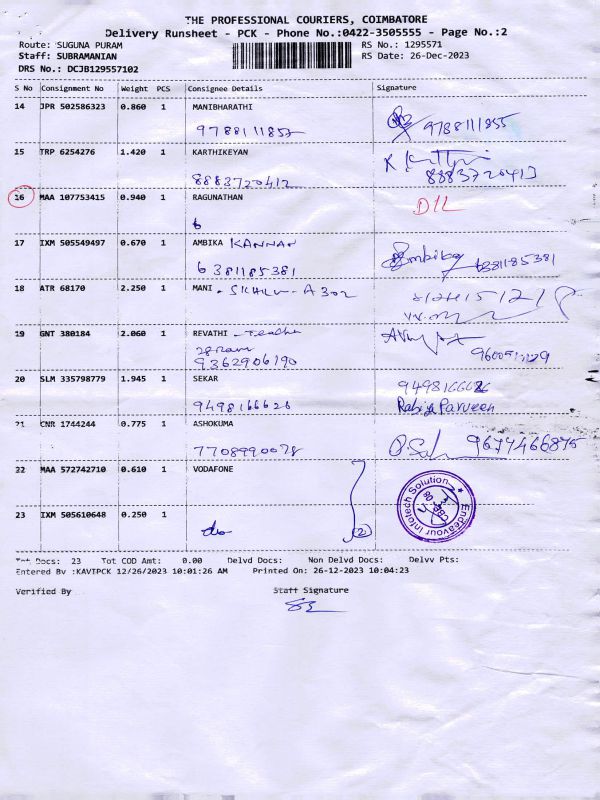 THE PROFESSIONAL COURIERS, COIMBATORE
Delivery Runsheet - PCK - Phone No.:0422-3505555 - Page No.:2
Route: SUGUNA PURAM RS No.: 1295571
Staff: SUBRAMANIAN RS Date: 26-Dec-2023
DRS No.: DCJB129557102
S No Consignment No Weight PCS Consignee Details Signature
14 JPR 502586323 0.860 1 MANIBHARATHI
9788111855 9788111855
15 TRP 6254276 1.420 1 KARTHIKEYAN
8883720412 8883720413
16 MAA 107753415 0.940 1 RAGUNATHAN D/L
17 IXM 505549497 0.670 1 AMBIKA KANNAN
6381185381 Ambika 6381185381
18 ATR 68170 2.250 1 MANI - A 302
19 GNT 380184 2.060 1 REVATHI - Teacher
9362906190
20 SLM 335798779 1.945 1 SEKAR 9498166626
9498166626 Rabiya Parveen
21 CNR 1744244 0.775 1 ASHOKUMA
7708990078 9677466875
22 MAA 572742710 0.610 1 VODAFONE
23 IXM 505610648 0.250 1
do (2)
Endeavour Infotech Solution
CBE-08
Tot Docs: 23 Tot COD Amt: 0.00 Delvd Docs: Non Delvd Docs: Delvv Pts:
Entered By :KAVIPCK 12/26/2023 10:01:26 AM Printed On: 26-12-2023 10:04:23
Verified By Staff Signature